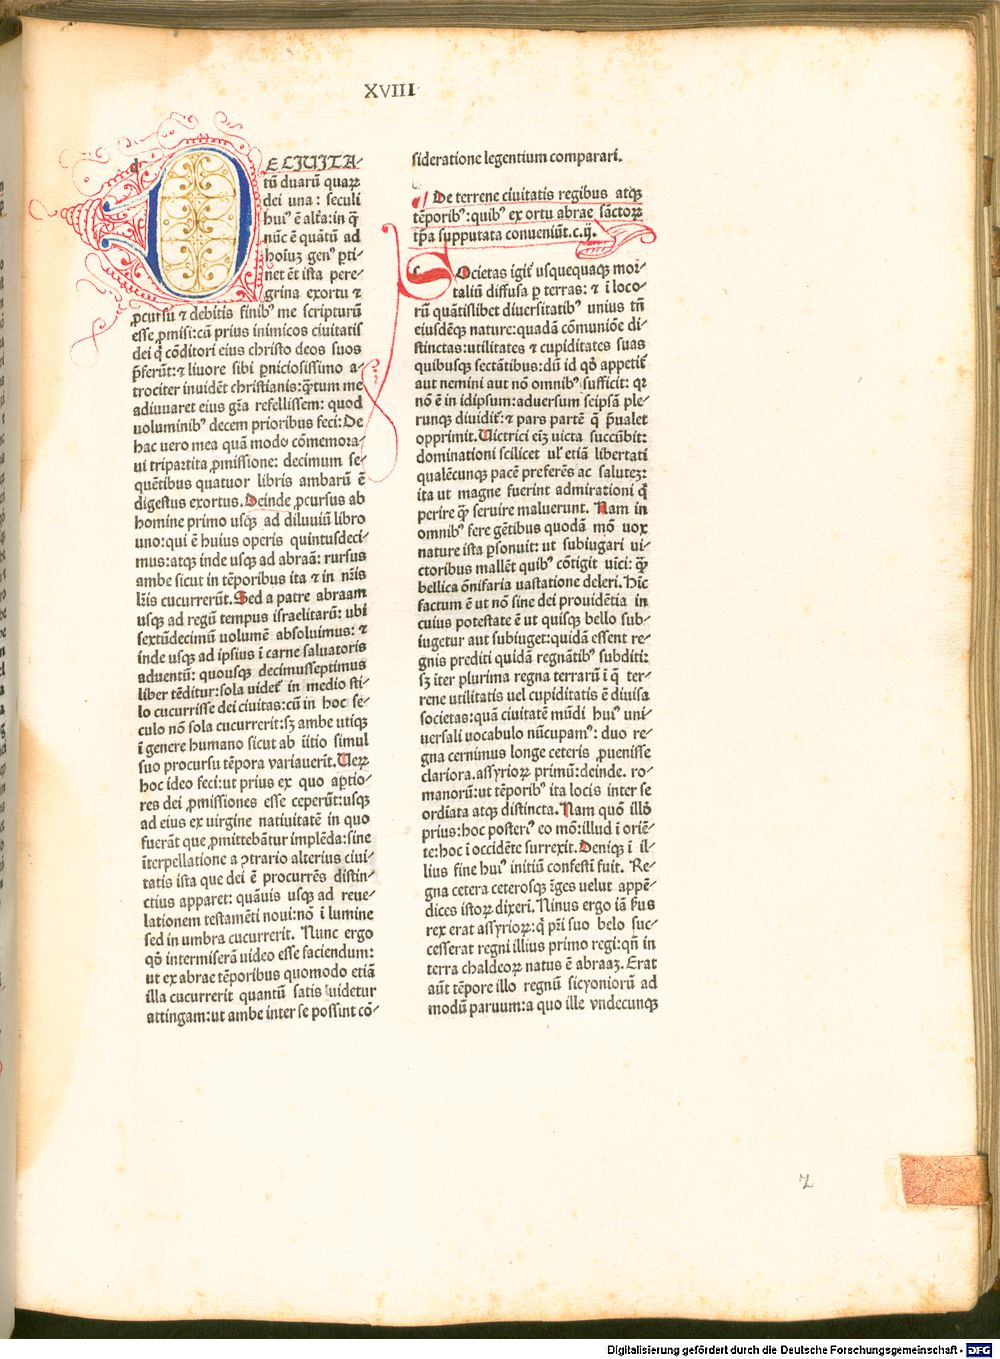 XVIII
d
E CIUITA⸗
tū duarū quaꝝ
dei una : seculi
huiꝰ ē alt̄a: in q̄
nūc ē quātū ad
hoiuꝫ genꝰ ꝑti⸗
net ēt ista pere⸗
grina exortu ⁊
ꝓcursu ⁊ debitis finibꝰ me scripturū
esse ꝓmisi: cū prius inimicos ciuitatis
dei q̄ cōditori eius christo deos suos
p̄ferūt: ⁊ liuore sibi ꝑniciosissimo a⸗
trociter inuidēt christianis: q̄tum me
adiuuaret eius gr̄a refellissem: quod
uoluminibꝰ decem prioribus feci: De
hac uero mea quā modo cōmemora⸗
ui tripartita ꝓmissione: decimum se⸗
quētibus quatuor libris ambarū ē
digestus exortus. Deinde ꝓcursus ab
homine primo usqꝫ ad diluuiū libro
uno: qui ē huius operis quintusdeci⸗
mus: atqꝫ inde usqꝫ ad abraā: rursus
ambe sicut in tēporibus ita ⁊ in nr̄is
lr̄is cucurrerūt. Sed a patre abraam
usqꝫ ad regū tempus israelitarū: ubi
sextūdecimū uolumē absoluimus: ⁊
inde usqꝫ ad ipsius ī carne saluatoris
aduentū: quousqꝫ decimusseptimus
liber tēditur: sola uidet᷑ in medio sti⸗
lo cucurrisse dei ciuitas: cū in hoc se⸗
culo nō sola cucurrerit: sꝫ ambe utiqꝫ
ī genere humano sicut ab īitio simul
suo procursu tēpora variauerit. Ueꝝ
hoc ideo feci: ut prius ex quo aꝑtio⸗
res dei ꝓmissiones esse ceperūt: usqꝫ
ad eius ex virgine natiuitatē in quo
fuerāt que ꝓmittebātur implēda: sine
īterpellatione a ↄtrario alterius ciui⸗
tatis ista que dei ē procurrēs distin⸗
ctius apparet: quāuis usqꝫ ad reue⸗
lationem testamēti noui: nō ī lumine
sed in umbra cucurrerit. Nunc ergo
qō intermiserā uideo esse faciendum:
ut ex abrae tēporibus quomodo etiā
illa cucurrerit quantū satis uidetur
attingam: ut ambe inter se possint cō⸗
sideratione legentium comparari.
De terrene ciuitatis regibus atqꝫ
tēporibꝰ: quibꝰ ex ortu abrae sāctoꝝ
tp̄a supputata conueniūt. c. ij.
SOcietas igit᷑ usquequaqꝫ mor⸗
taliū diffusa ꝑ terras: ⁊ ī loco⸗
rū quātislibet diuersitatibꝰ unius tn̄
eiusdēqꝫ nature: quadā cōmuniōe di⸗
stinctas: utilitates ⁊ cupiditates suas
quibusqꝫ sectātibus: dū id qō appetit᷑
aut nemini aut nō omnibꝰ sufficit: qꝛ
nō ē in idipsum: aduersum seipsā ple⸗
runqꝫ diuidit᷑: ⁊ pars partē q̄ p̄ualet
opprimit. Uictrici eīꝫ uicta succūbit:
dominationi scilicet ul᷑ etiā libertati
qualēcunqꝫ pacē preferēs ac salutez:
ita ut magne fuerint admirationi q̄
perire q̄ꝫ seruire maluerunt. Nam in
omnibꝰ fere gētibus quodā mō uox
nature ista ꝑsonuit: ut subiugari ui⸗
ctoribus mallēt quibꝰ cōtigit uici: q̄ꝫ
bellica ōnifaria uastatione deleri. Hīc
factum ē ut nō sine dei prouidētia in
cuius potestate ē ut quisqꝫ bello sub⸗
iugetur aut subiuget: quidā essent re⸗
gnis prediti quidā regnātibꝰ subditi:
sꝫ īter plurima regna terrarū ī q̄ ter⸗
rene utilitatis uel cupiditatis ē diuisa
societas: quā ciuitatē mūdi huiꝰ uni⸗
uersali uocabulo nūcupamꝰ: duo re⸗
gna cernimus longe ceteris ꝓuenisse
clariora. assyrioꝝ primū: deinde. ro⸗
manorū: ut tēporibꝰ ita locis inter se
ordīata atqꝫ distincta. Nam quō illō
prius: hoc posteriꝰ eo mō: illud ī oriē⸗
te: hoc ī occidēte surrexit. Deniqꝫ ī il⸗
lius fine huiꝰ initiū confesti fuit. Re⸗
gna cetera ceterosqꝫ r̄ges uelut appē⸗
dices istoꝝ dixeri. Ninus ergo iā s̄us
rex erat assyrioꝝ: q̄ pr̄i suo belo suc⸗
cesserat regni illius primo regi: qn̄ in
terra chaldeoꝝ natus ē abraaꝫ. Erat
aūt tēpore illo regnū sicyoniorū ad
modū paruum: a quo ille vndecunqꝫ
2
Digitalisierung gefördert durch die Deutsche Forschungsgemeinschaft - DFG